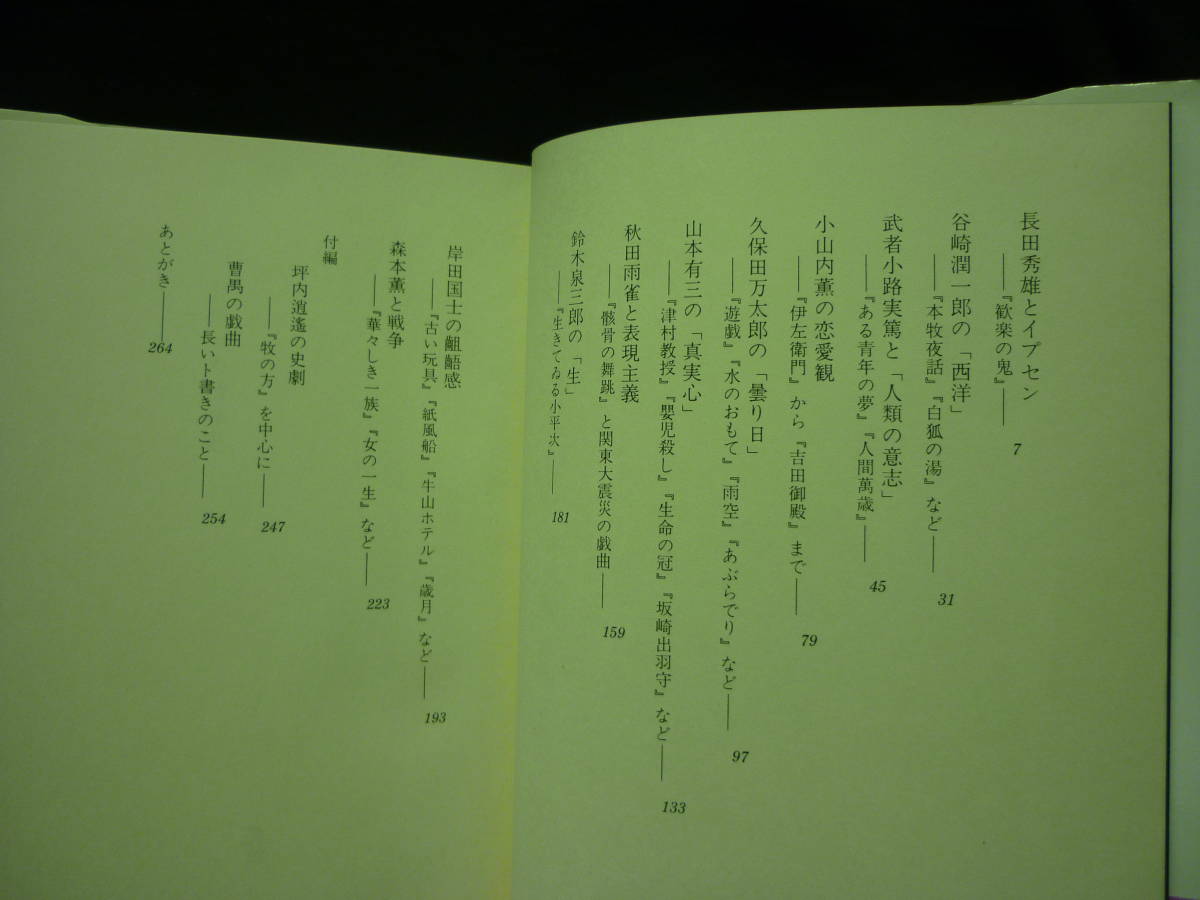 長田秀雄とイプセン
――『歓楽の鬼』―― 7
谷崎潤一郎の「西洋」
――『本牧夜話』『白狐の湯』など―― 31
武者小路実篤と「人類の意志」
――『ある青年の夢』『人間萬歳』―― 45
小山内薫の恋愛観
――『伊左衛門』から『吉田御殿』まで―― 79
久保田万太郎の「曇り日」
――『遊戯』『水のおもて』『雨空』『あぶらでり』など―― 97
山本有三の「真実心」
――『津村教授』『嬰児殺し』『生命の冠』『坂崎出羽守』など―― 133
秋田雨雀と表現主義
――『骸骨の舞跳』と関東大震災の戯曲―― 159
鈴木泉三郎の「生」
――『生きてゐる小平次』―― 181
岸田国士の齟齬感
――『古い玩具』『紙風船』『牛山ホテル』『歳月』など―― 193
森本薫と戦争
――『華々しき一族』『女の一生』など―― 223
付編
坪内逍遙の史劇
――『牧の方』を中心に―― 247
曹禺の戯曲
――長いト書きのこと―― 254
あとがき―― 264